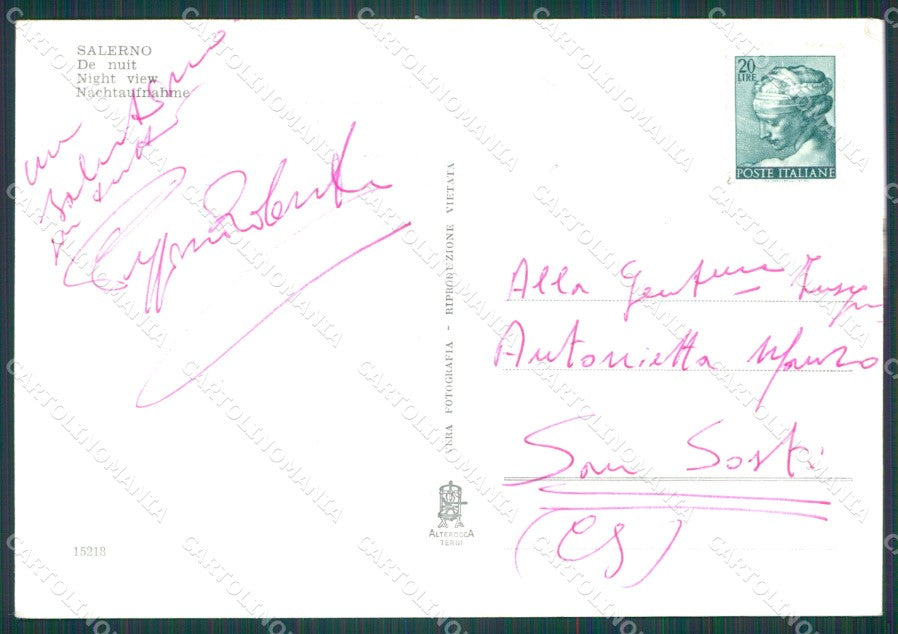 SALERNO
De nuit
Night view
Nachtaufnahme
un
VERA FOTOGRAFIA - RIPRODUZIONE VIETATA
20
LIRE
POSTE ITALIANE
Alla
Antonietta
San Sosti
(CS)
ALTEROCCA
TERNI
15218
CARTOLINOMANIA